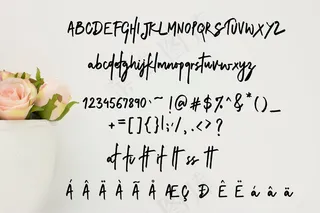 ABCDEFGHIJKLMNOPQRSTUVWXYZ
abcdefghijklmnopqrstuvwxyz
1234567890-~ !@#$%^&*()_
+=[]{}|:;/,.<>?
Á Â Ä À Ã Å Æ Ç Ð Ê Ë á â ä